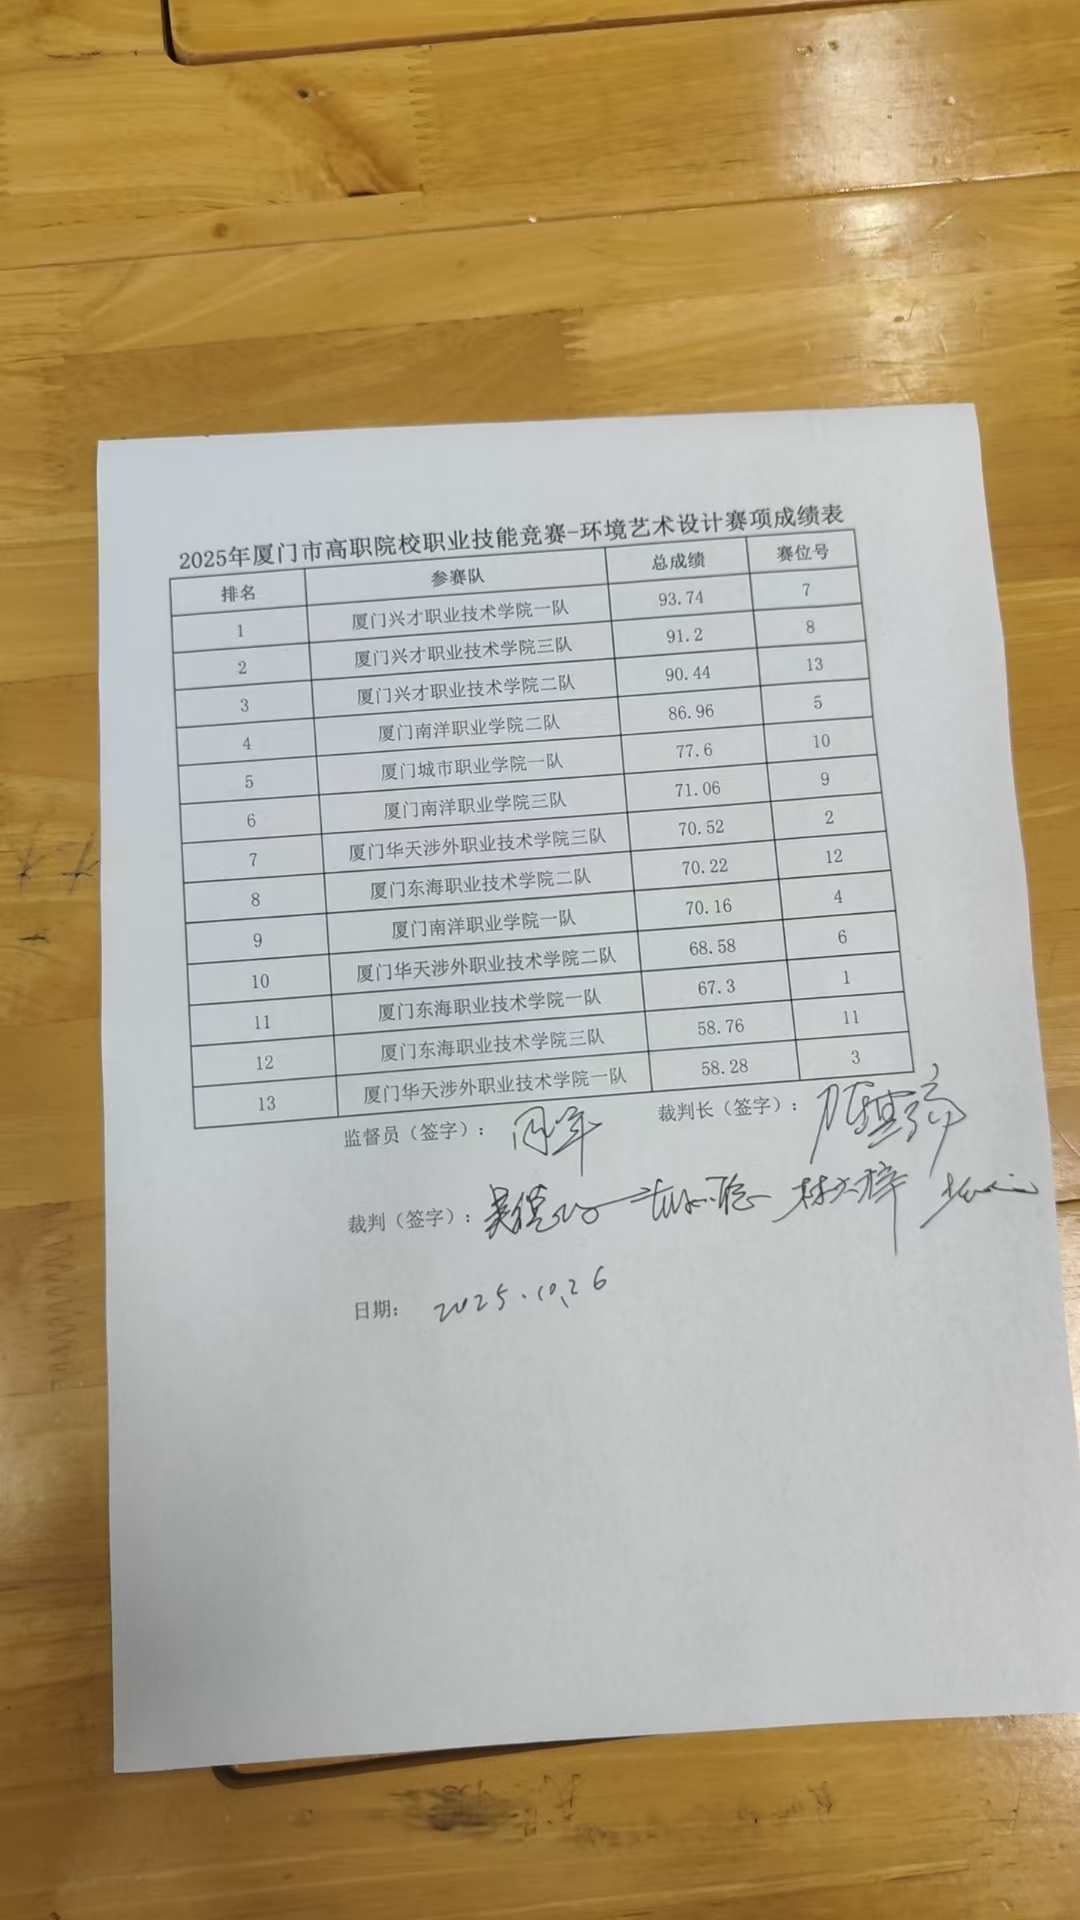 2025年厦门市高职院校职业技能竞赛-环境艺术设计赛项成绩表
排名 参赛队 总成绩 赛位号
1 厦门兴才职业技术学院一队 93.74 7
2 厦门兴才职业技术学院三队 91.2 8
3 厦门兴才职业技术学院二队 90.44 13
4 厦门南洋职业学院二队 86.96 5
5 厦门城市职业学院一队 77.6 10
6 厦门南洋职业学院三队 71.06 9
7 厦门华天涉外职业技术学院三队 70.52 2
8 厦门东海职业技术学院二队 70.22 12
9 厦门南洋职业学院一队 70.16 4
10 厦门华天涉外职业技术学院二队 68.58 6
11 厦门东海职业技术学院一队 67.3 1
12 厦门东海职业技术学院三队 58.76 11
13 厦门华天涉外职业技术学院一队 58.28 3
监督员（签字）： 裁判长（签字）：
裁判（签字）：
日期： 2025.10.26